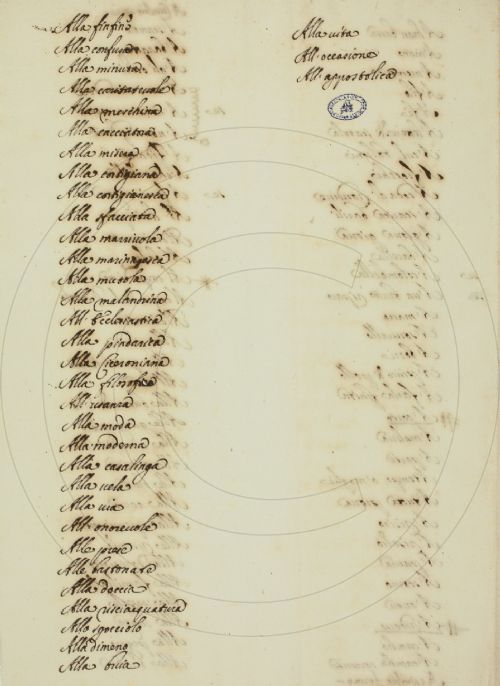 Alla finfino
Alla confusa
Alla minuta
Alla caritatevole
Alla meschina
Alla cacciatora
Alla misera
Alla cortigiana
Alla cortigianesca
Alla sfacciata
Alla marriuola
Alla marinaresca
Alla mutola
Alla malandrina
All' Ecclesiastica
Alla pindarica
Alla Ciceroniana
Alla filosofica
All' usanza
Alla moda
Alla moderna
Alla casalinga
Alla vela
Alla via
All' onorevole
Alle prese
Alle bastonate
Alla doccia
Alla risciacquatura
Allo spocciolo
Alla dimeno
Alla
Alla vita
All' occasione
All' appostolica